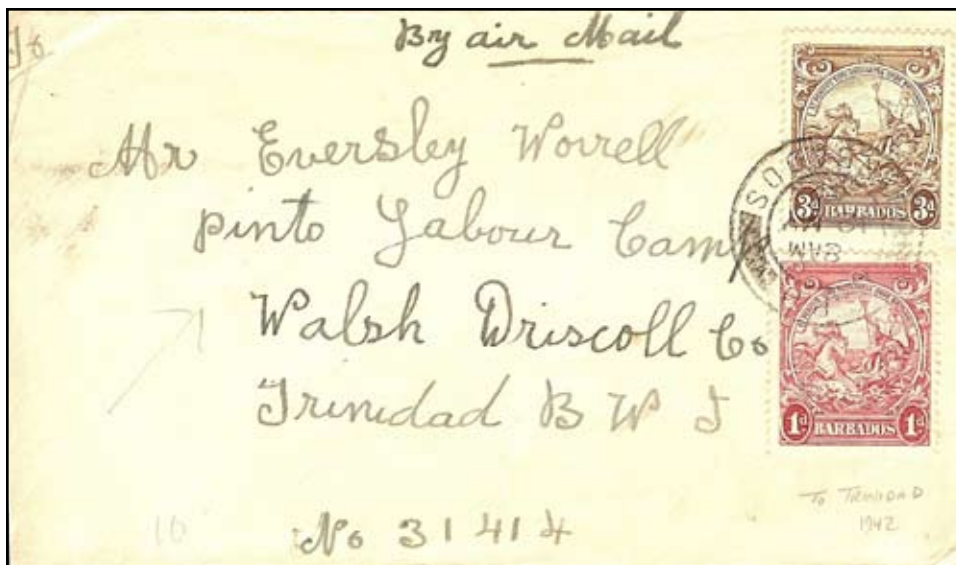 By air Mail
To
Mr Eversley Worrell
pinto Labour Camp
Walsh Driscoll Co
Trinidad B W I
No 31414
3d BARBADOS 3d
1d BARBADOS 1d
To TRINIDAD
1942
10